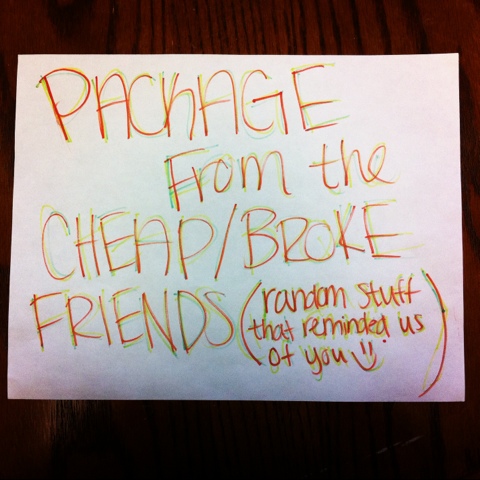 PACKAGE
From the
CHEAP/BROKE
FRIENDS (random stuff
that reminded us
of you)